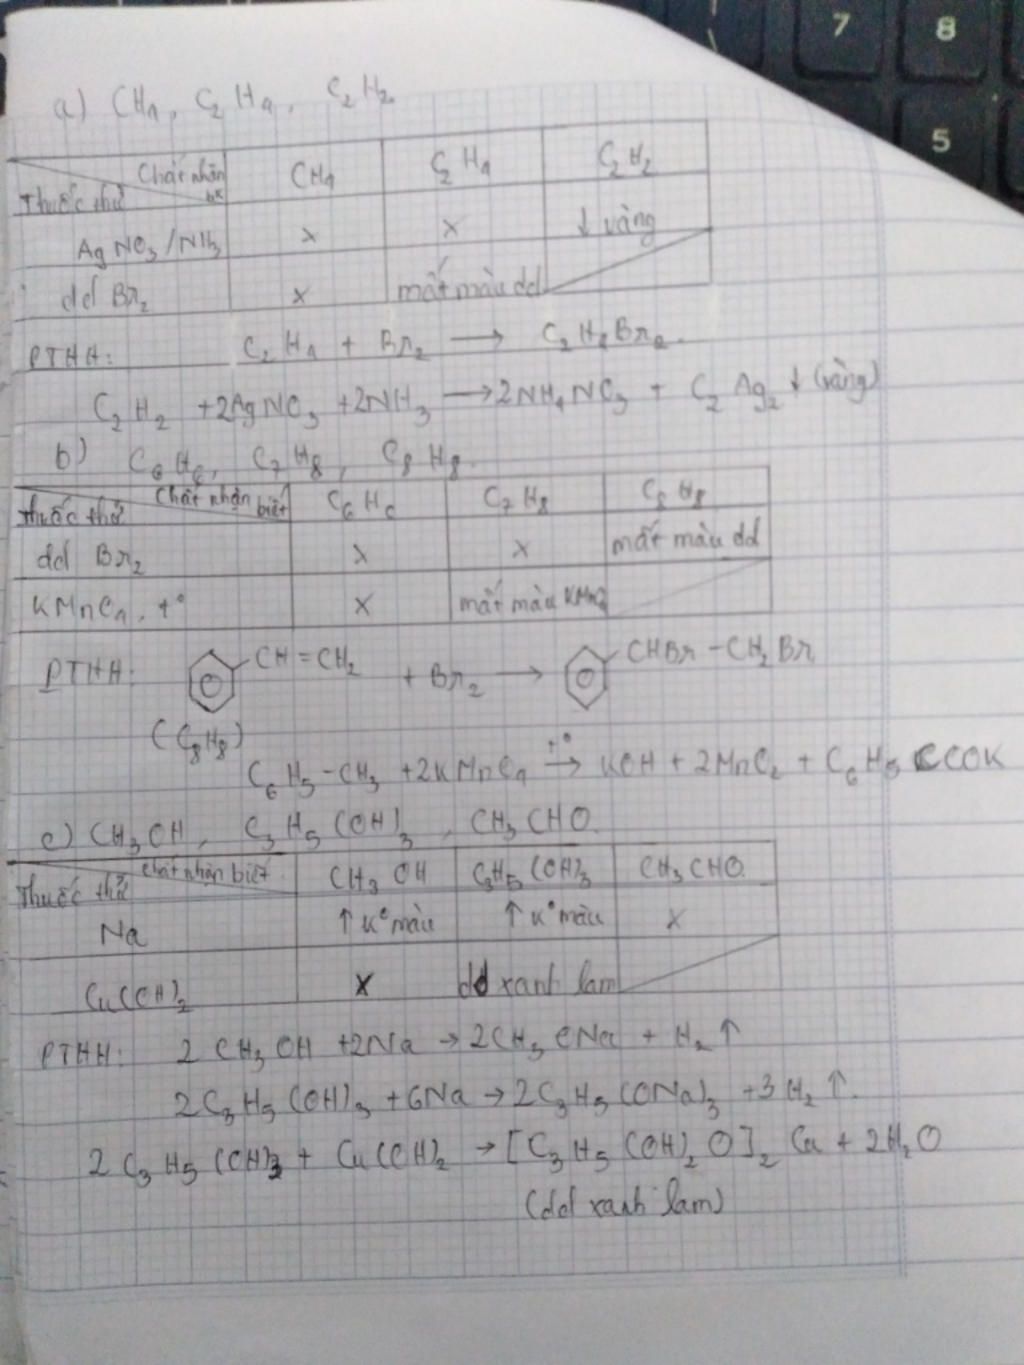 7 8
5
a) CH4, C2H4, C2H2.
Chất nhận biết CH4 C2H4 C2H2
Thuốc thử
AgNO3/NH3 x x ↓ vàng
dd Br2 x mất màu dd
PTHH: C2H4 + Br2 → C2H4Br2.
C2H2 + 2AgNO3 + 2NH3 → 2NH4NO3 + C2Ag2 ↓ (vàng)
b) C6H6, C7H8, C8H8.
Chất nhận biết C6H6 C7H8 C8H8
Thuốc thử
dd Br2 x x mất màu dd
KMnO4, t° x mất màu KMnO4
PTHH: CH=CH2 + Br2 → CHBr-CH2Br
(C8H8)
C6H5-CH3 + 2KMnO4 t° → KOH + 2MnO2 + C6H5COOK
c) CH3OH, C3H5(OH)3, CH3CHO.
Chất nhận biết CH3OH C3H5(OH)3 CH3CHO.
Thuốc thử
Na ↑ K° màu ↑ K° màu x
Cu(OH)2 x dd xanh lam
PTHH: 2CH3OH + 2Na → 2CH3ONa + H2↑
2C3H5(OH)3 + 6Na → 2C3H5(ONa)3 + 3H2↑.
2C3H5(OH)3 + Cu(OH)2 → [C3H5(OH)2O]2Cu + 2H2O
(dd xanh lam)